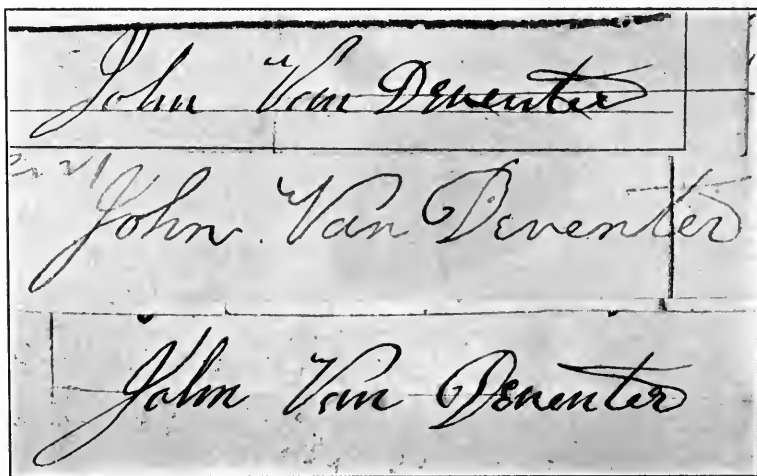 John Van Deventer
John. Van Deventer
John Van Deventer